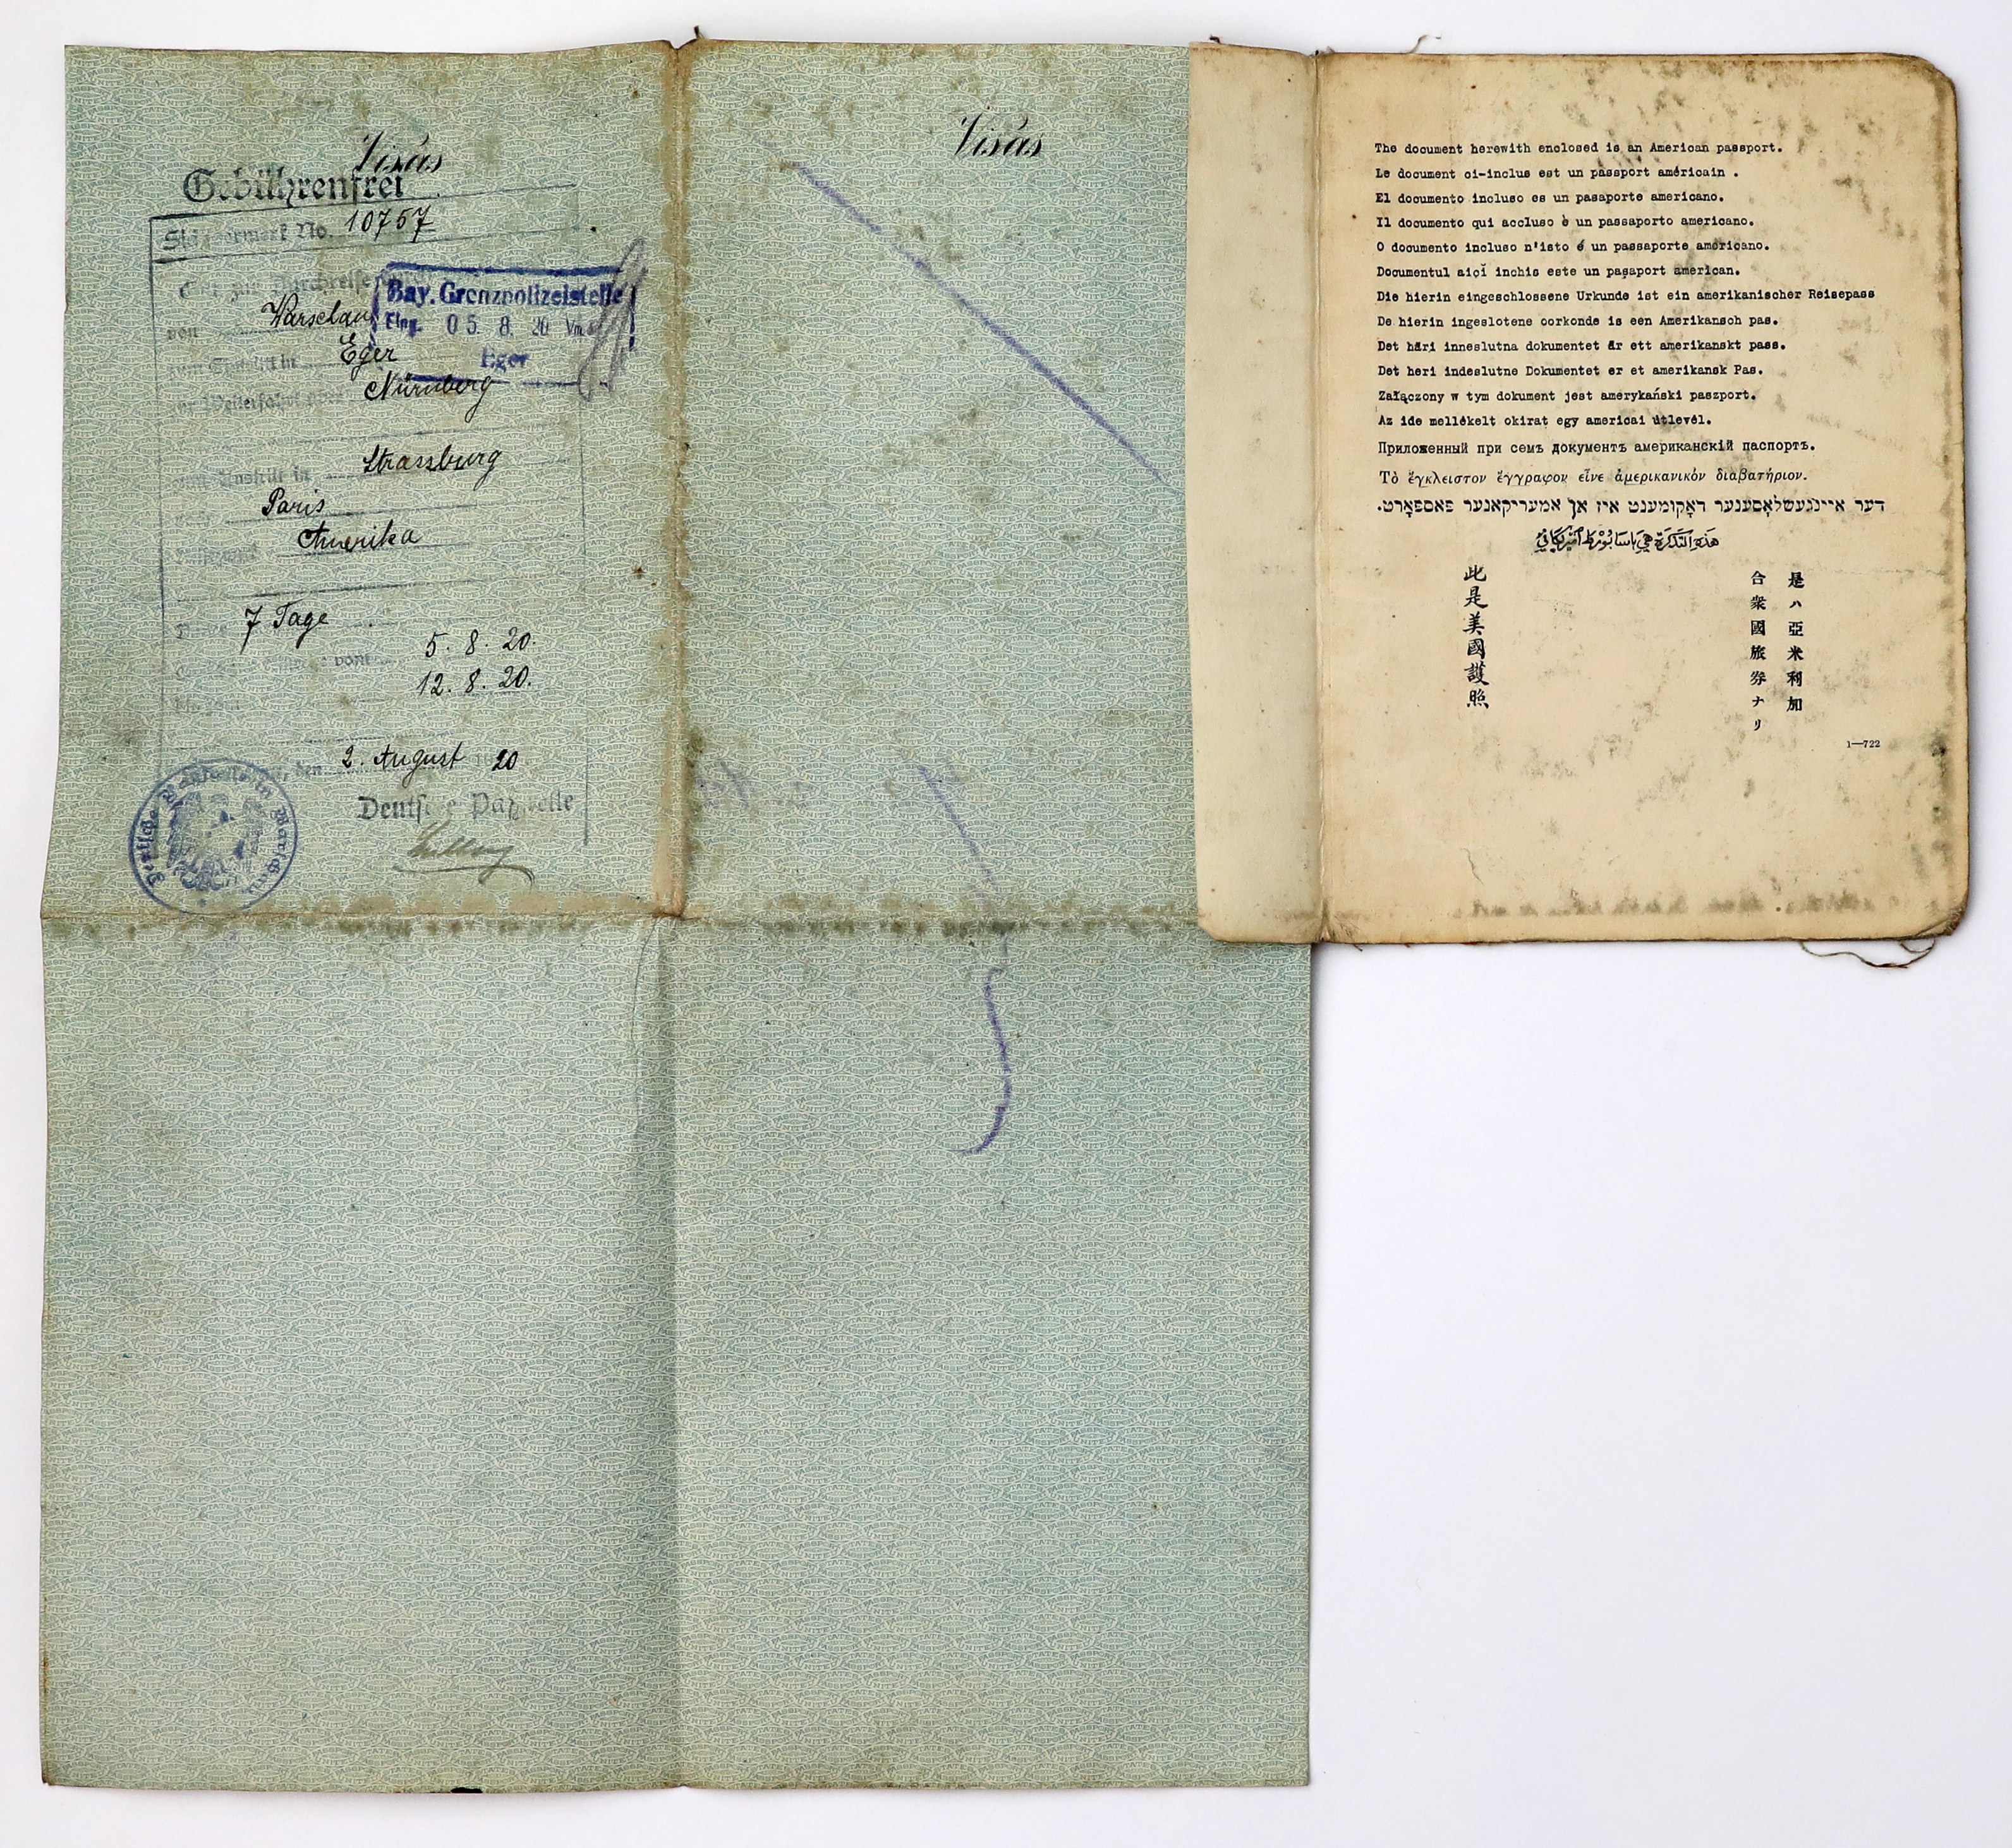 Visas
Gebührenfrei
No. 10757
von Warschau
Bay. Grenzpolizeistelle
Eing. 05. 8. 20 Vm.
Eger
Eger
Nürnberg
Strassburg
Paris
Amerika
7 Tage
5. 8. 20.
12. 8. 20.
den 2. August 20
Deutsche Paßstelle
Visas
The document herewith enclosed is an American passport.
Le document ci-inclus est un passport américain .
El documento incluso es un pasaporte americano.
Il documento qui accluso è un passaporto americano.
O documento incluso n'isto é un passaporte americano.
Documentul aicĭ inchis este un paşaport american.
Die hierin eingeschlossene Urkunde ist ein amerikanischer Reisepass
De hierin ingeslotene oorkonde is een Amerikansch pas.
Det häri inneslutna dokumentet är ett amerikanskt pass.
Det heri indeslutne Dokumentet er et amerikansk Pas.
Załączony w tym dokument jest amerykański paszport.
Az ide mellékelt okirat egy americai útlevél.
Приложенный при семъ документъ американскій паспортъ.
Τὸ ἔγκλειστον ἔγγραφον εἶνε ἀμερικανικὸν διαβατήριον.
דער איינגעשלאָסענער דאָקומענט איז אן אמעריקאנער פּאספּאָרט.
هذه التذكرة هي باسابورط أمريكاني
此是美國護照
是ハ亞米利加
合衆國旅券ナリ
1—722